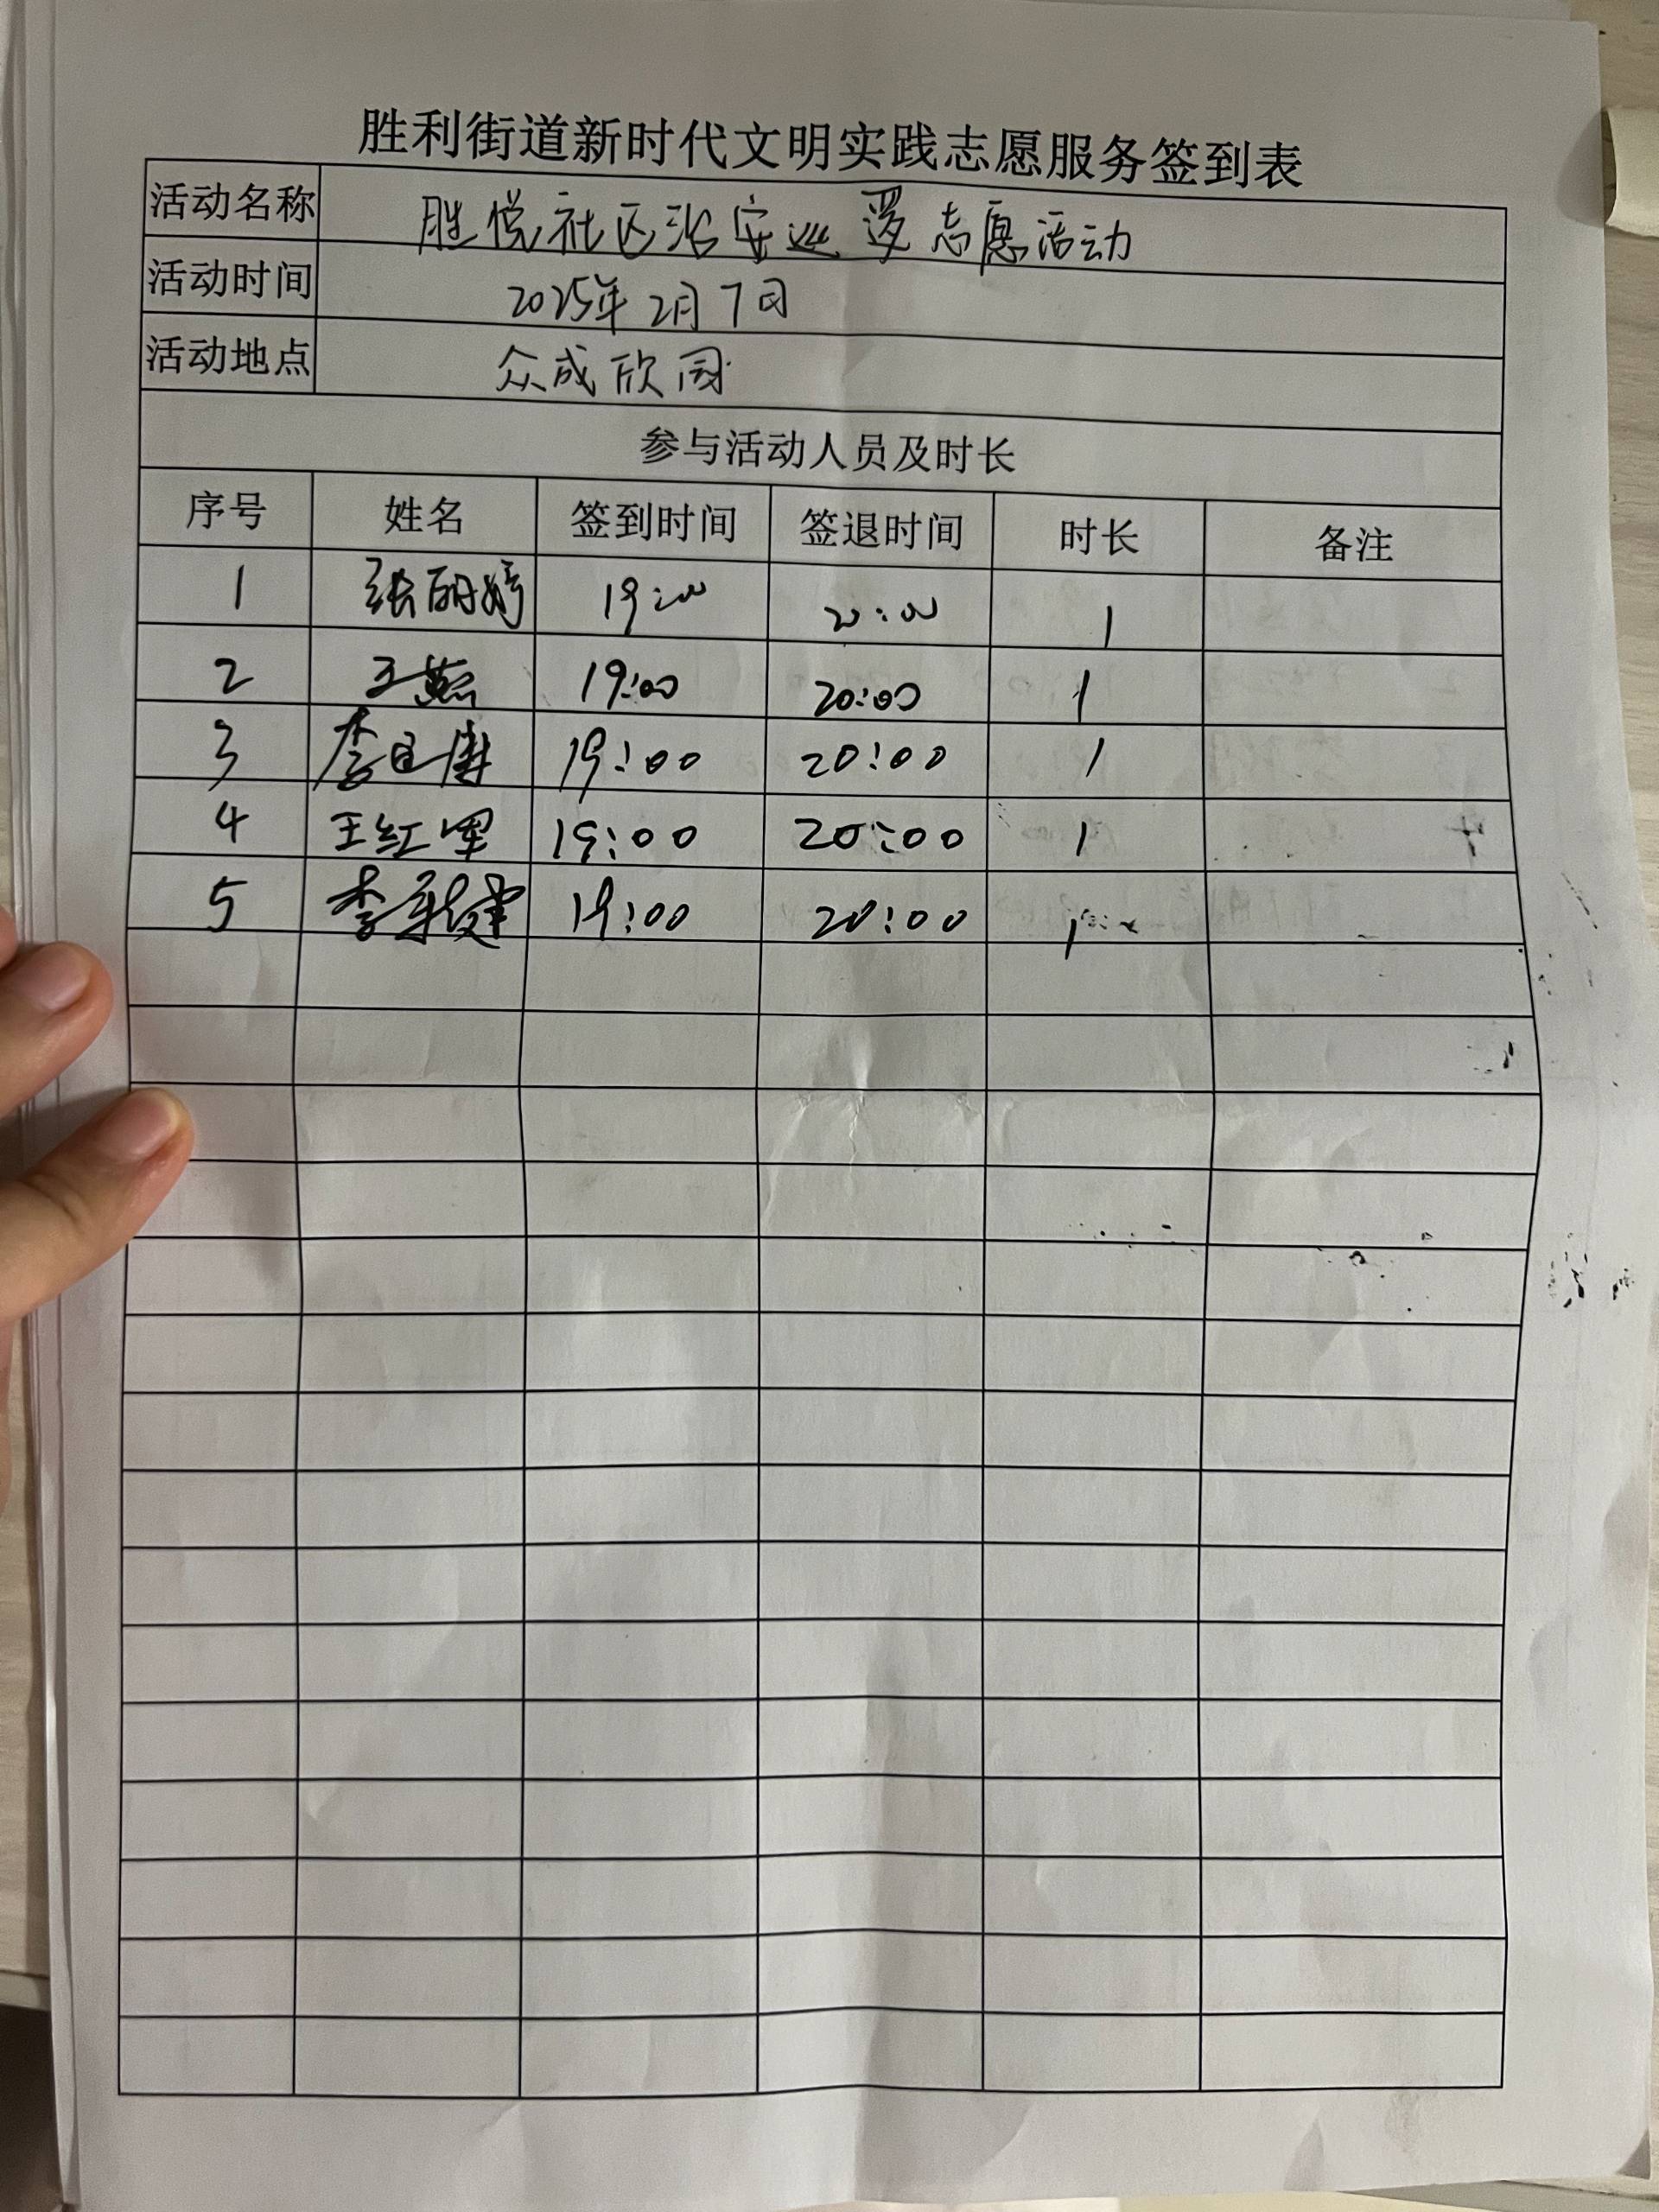 胜利街道新时代文明实践志愿服务签到表
活动名称 胜悦社区治安巡逻志愿活动
活动时间 2025年2月7日
活动地点 众成欣园
参与活动人员及时长
序号 姓名 签到时间 签退时间 时长 备注
1 张丽婷 19:00 20:00 1
2 王燕 19:00 20:00 1
3 李 19:00 20:00 1
4 王红军 19:00 20:00 1
5 李 健 19:00 20:00 1